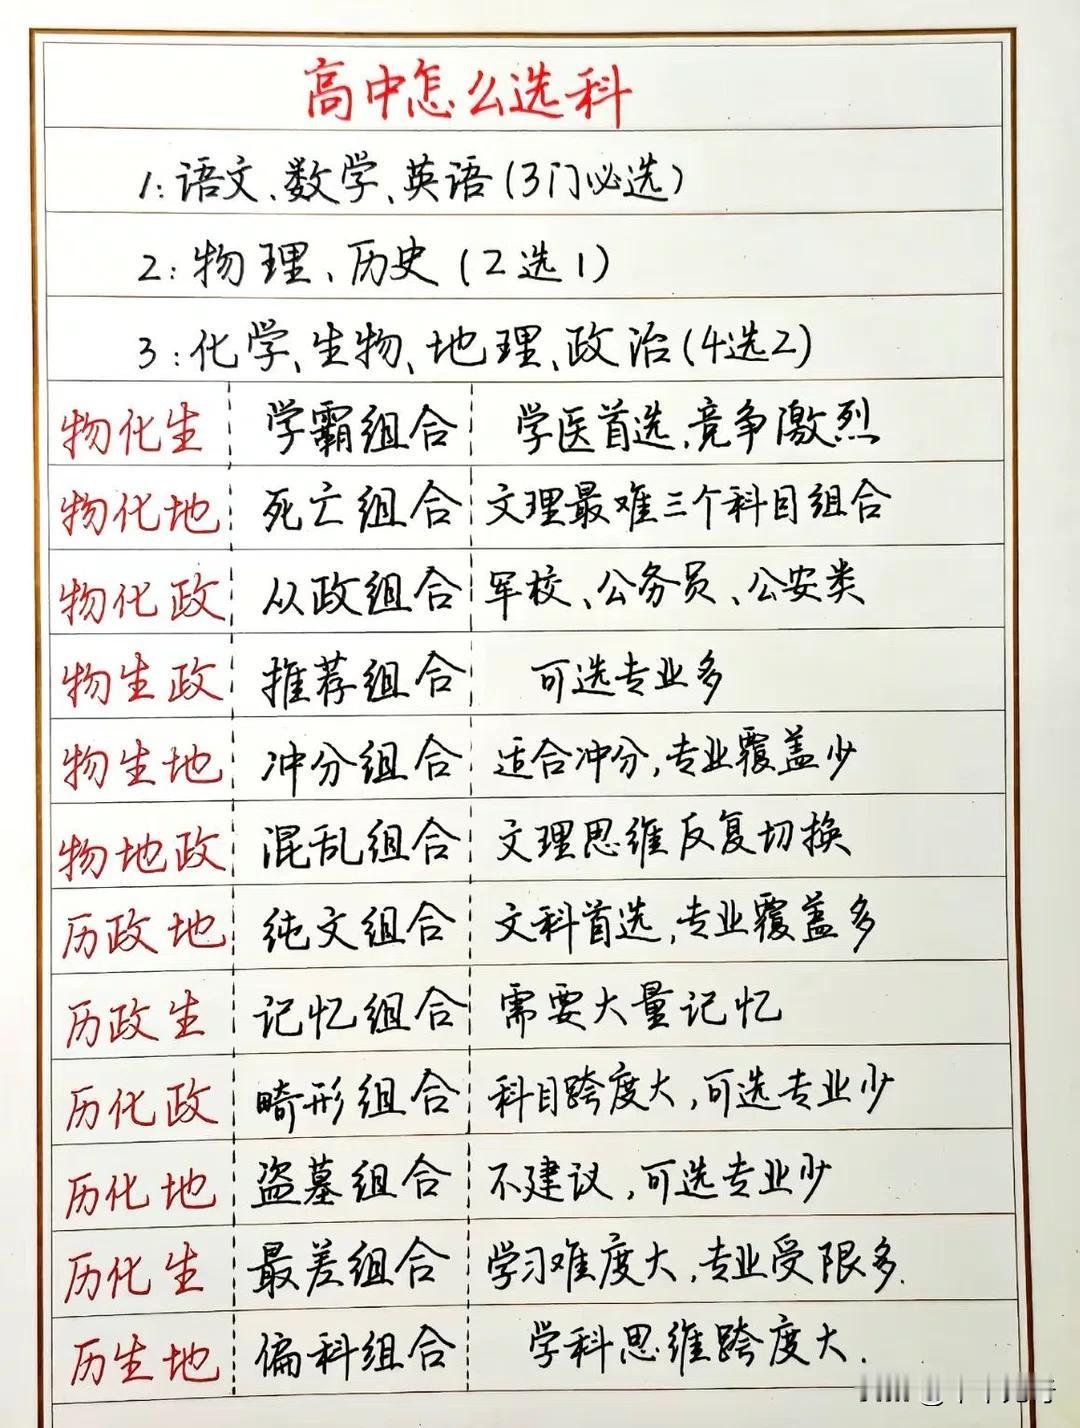 高中怎么选科
1:语文、数学、英语(3门必选)
2:物理、历史(2选1)
3:化学、生物、地理、政治(4选2)
物化生 学霸组合 学医首选,竞争激烈
物化地 死亡组合 文理最难三个科目组合
物化政 从政组合 军校、公务员、公安类
物生政 推荐组合 可选专业多
物生地 冲分组合 适合冲分,专业覆盖少
物地政 混乱组合 文理思维反复切换
历政地 纯文组合 文科首选,专业覆盖多
历政生 记忆组合 需要大量记忆
历化政 畸形组合 科目跨度大,可选专业少
历化地 盗墓组合 不建议,可选专业少
历化生 最差组合 学习难度大,专业受限多.
历生地 偏科组合 学科思维跨度大.